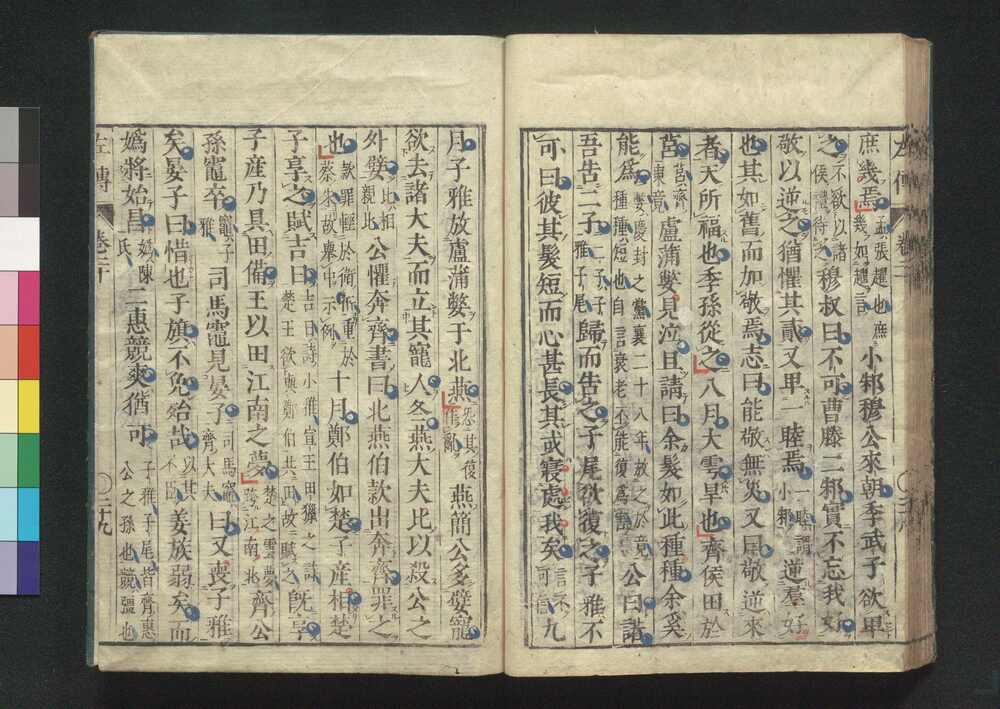 庶幾焉孟張趯也庶幾如趯言小邾穆公來朝季武子欲卑
之不欲以諸侯禮待之穆叔曰不可曹滕二邾實不忘我好
敬以逆之猶懼其貳又卑一睦焉一睦謂小邾逆羣好
也其如舊而加敬焉志曰能敬無災又曰敬逆來
者天所福也季孫從之八月大雩旱也齊侯田於
莒莒齊東竟盧蒲嫳見泣且請曰余髮如此種種余奚
能爲嫳慶封之黨襄二十八年放之於竟種種短也自言衰老不能復爲害公曰諾
吾告二子二子子雅子尾歸而告之子尾欲復之子雅不
可曰彼其髮短而心甚長其或寢處我矣言不可信九
月子雅放盧蒲嫳于北燕恐其復作亂燕簡公多嬖寵
欲去諸大夫而立其寵人冬燕大夫比以殺公之
外嬖比相親比公懼奔齊書曰北燕伯款出奔齊罪之
也款罪輕於衛衎重於蔡朱故舉中示例十月鄭伯如楚子產相楚
子享之賦吉日吉日詩小雅宣王田獵之詩楚王欲與鄭伯共田故賦之既享
子產乃具田備王以田江南之夢楚之雲夢跨江南北齊公
孫竈卒竈子雅司馬竈見晏子司馬竈齊大夫曰又喪子雅
矣晏子曰惜也子旗不免殆哉以其不臣姜族弱矣而
嬀將始昌嬀陳氏二惠競爽猶可子雅子尾皆齊惠公之孫也競彊也
左傳 卷二十 〇二十九